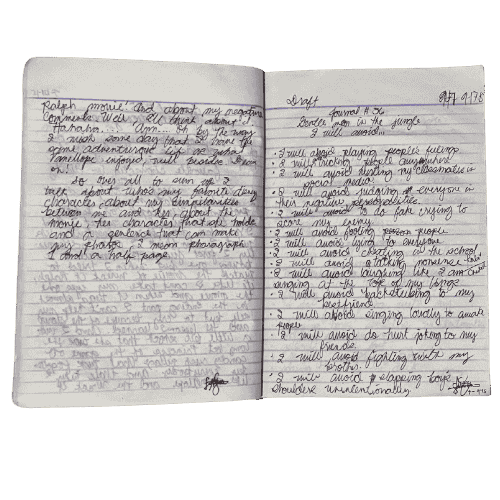 Ralph movie! And about my negative
comments. Well. I'll think about it
Hahaha.... Umm... Oh by the way
I wish some day that I have the
same adventures like as what
Vanellope enjoyed, well besides Dream
on!!
So over all to sum up I
talk about who's my favorite disney
character, about my similarities
between me and her, about the
movie, her character that she holds
and a sentence that can make
my phrase, I mean paragraph
1 and a half page.
Draft
Journal # 26
man in the jungle
I will avoid...
• I will avoid playing people's feelings
• I will avoid tricking people anywhere
• I will avoid my classmates in
social media.
• I will avoid judging everyone in
their negative personalities.
• I will avoid to do fake crying to
scare my enemy.
• I will avoid fooling people
• I will avoid lying to everyone
• I will avoid cheating at the school
• I will avoid a talking nonsense
• I will avoid laughing like I am
singing at the top of my lungs
• I will avoid backstabbing to my
bestfriend
• I will avoid singing loudly to awake
people
• I will avoid do hurt joking to my
friends.
• I will avoid fighting with my
brother.
• I will avoid slapping boy's
shoulders unintentionally.